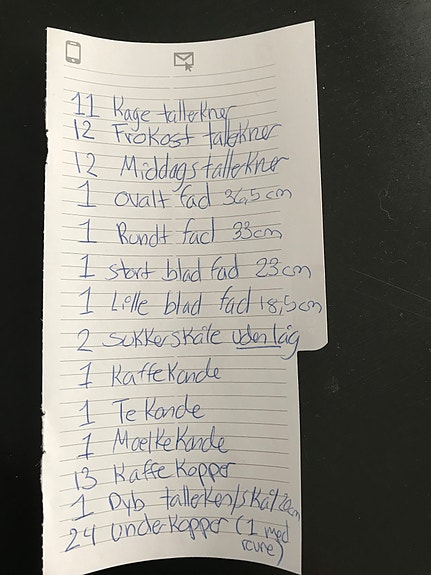 11 Kage tallerkner
12 Frokost tallerkner
12 Middags tallerkner
1 ovalt fad 36,5 cm
1 Rundt fad 33 cm
1 stort blad fad 23 cm
1 Lille blad fad 18,5 cm
2 sukkerskåle uden låg
1 Kaffe Kande
1 Te Kande
1 Mælke Kande
13 Kaffe Kopper
1 Dyb tallerken/skål 20cm
24 underkopper (1 med
revne)